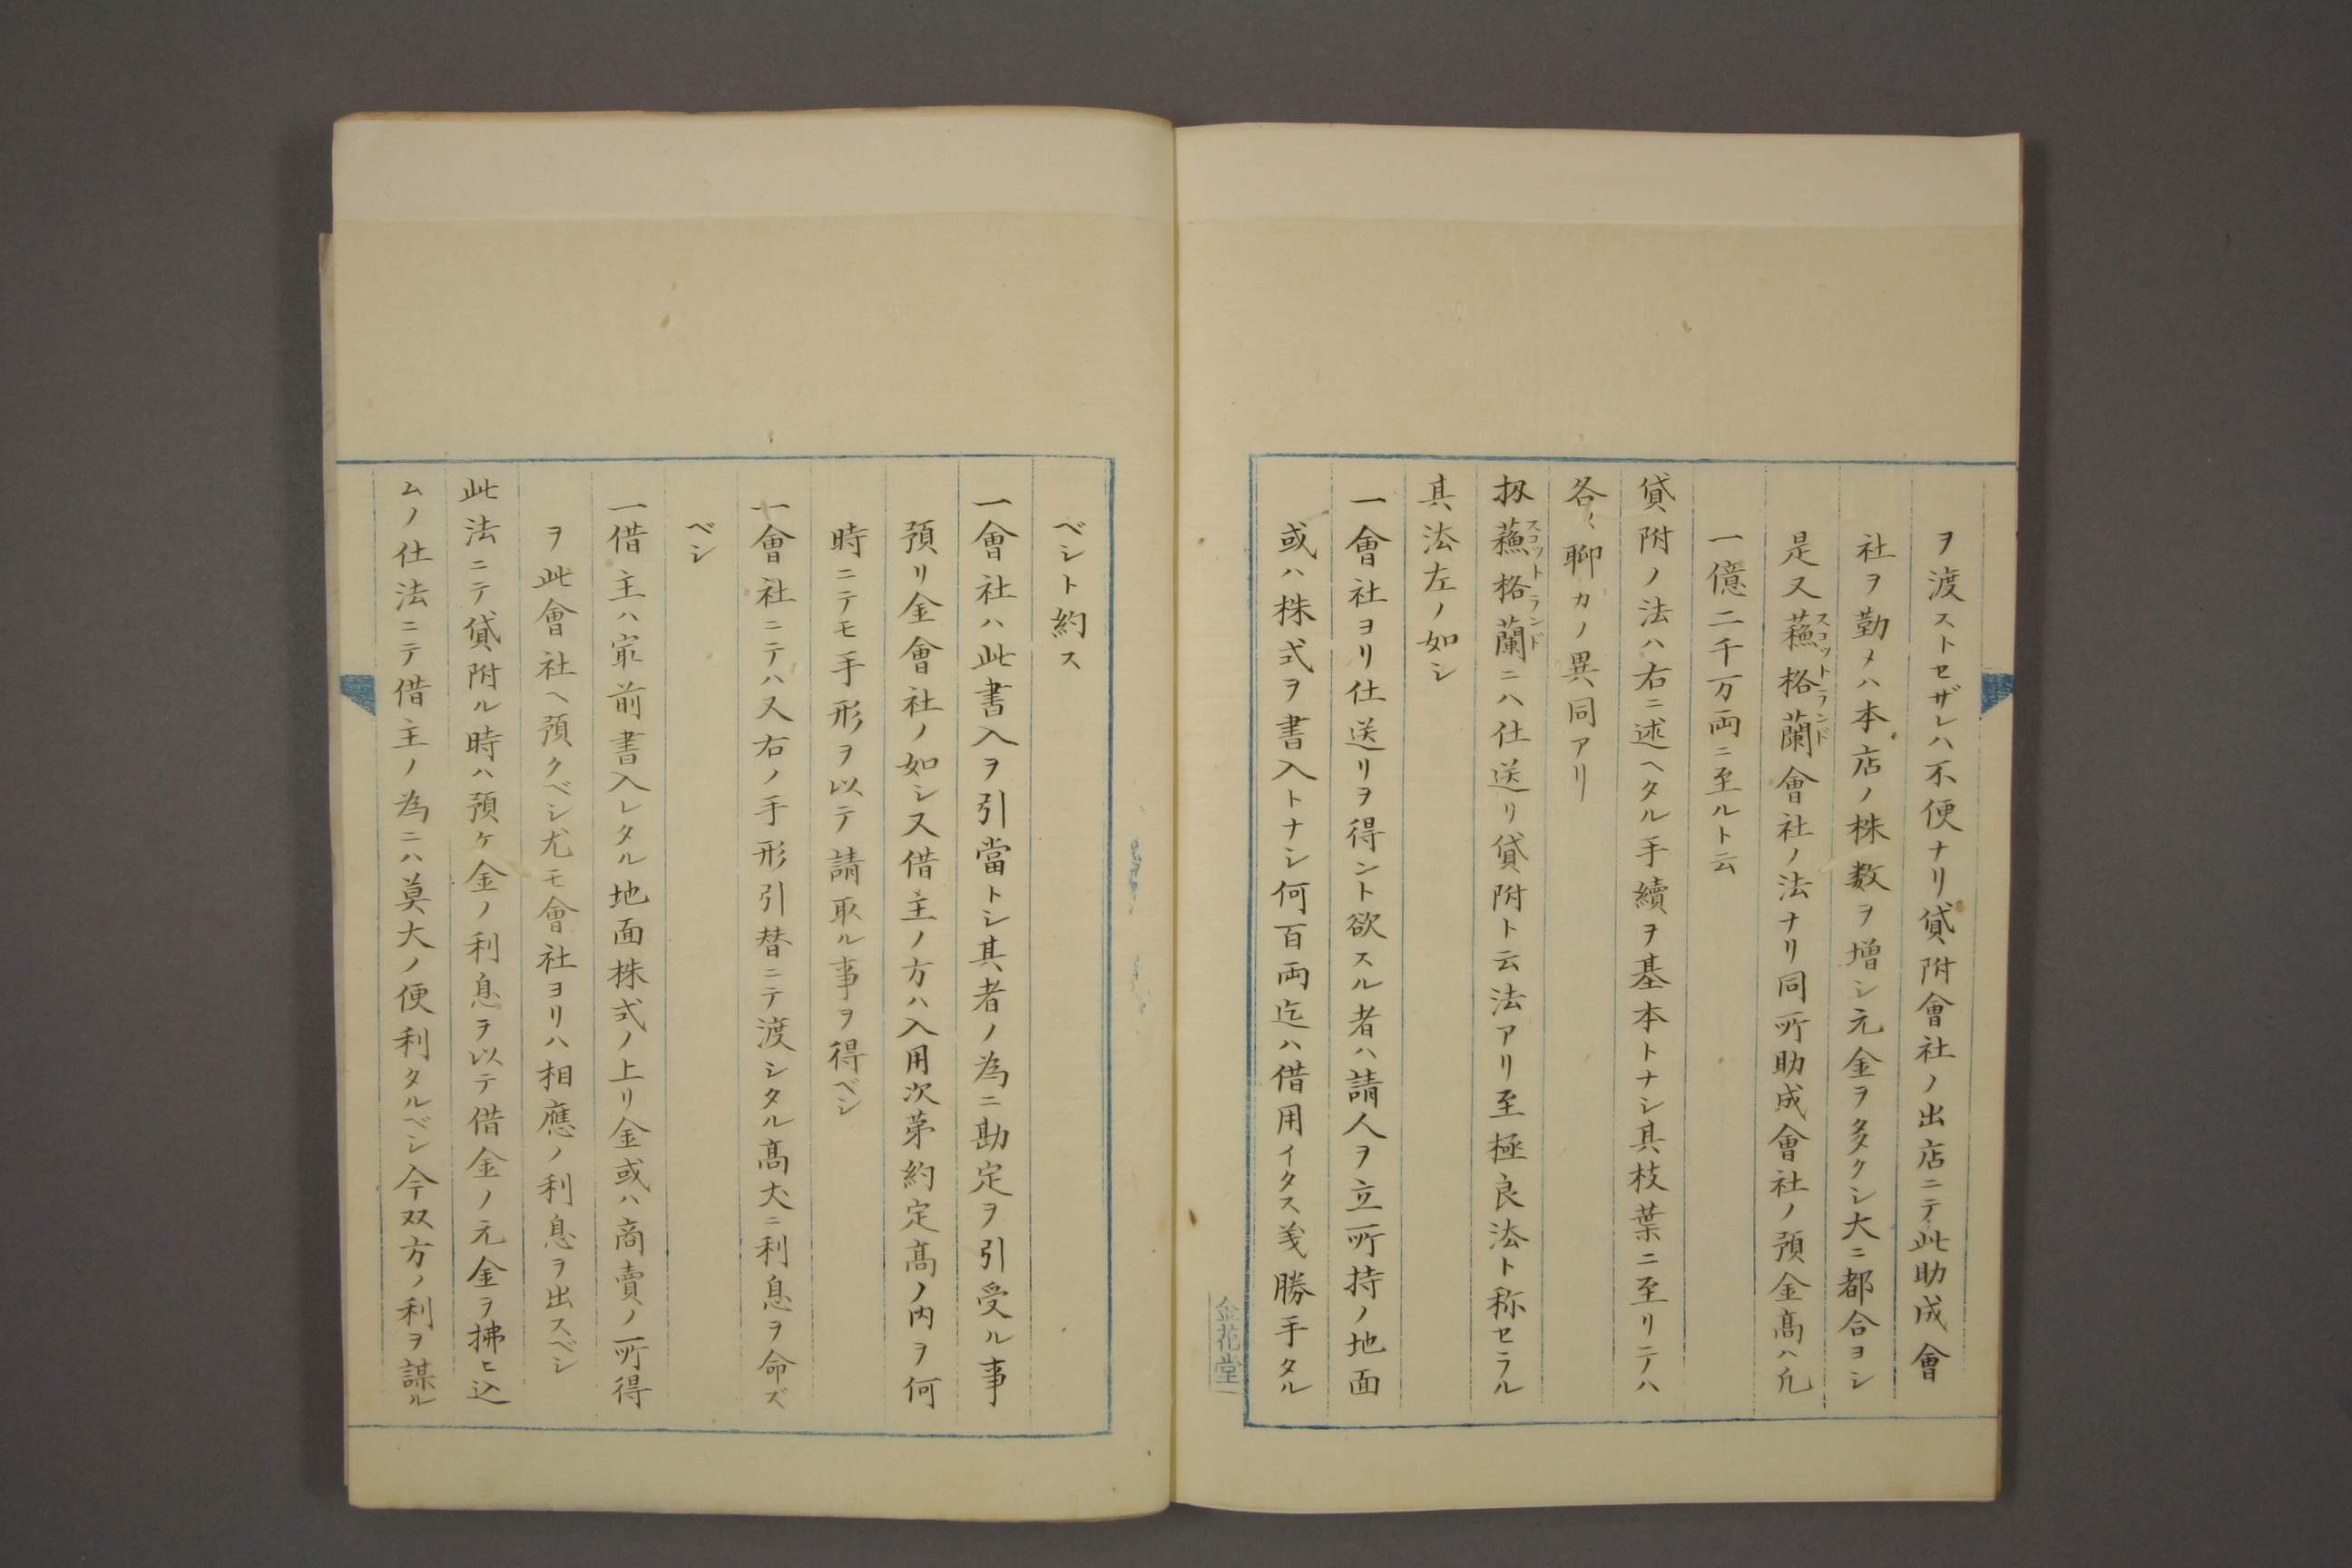 ヲ渡ストセザレハ不便ナリ貸附會社ノ出店ニテ此助成會
社ヲ勤メハ本店ノ株数ヲ増シ元金ヲ多クシ大ニ都合ヨシ
是又蘓格蘭會社ノ法ナリ同所助成會社ノ預金高ハ凢
スコットランド
一億二千万両ニ至ルト云
貸附ノ法ハ右ニ述ヘタル手續ヲ基本トナシ其枝葉ニ至リテハ
各〻聊カノ異同アリ
扨蘓格蘭ニハ仕送リ貸附ト云法アリ至極良法ト称セラル
スコットランド
其法左ノ如シ
一會社ヨリ仕送リヲ得ント欲スル者ハ請人ヲ立所持ノ地面
或ハ株式ヲ書入トナシ何百両迄ハ借用イタス義勝手タル
金花堂
ベシト約ス
一會社ハ此書入ヲ引當トシ其者ノ為ニ勘定ヲ引受ル事
預リ金會社ノ如シ又借主ノ方ハ入用次第約定髙ノ内ヲ何
時ニテモ手形ヲ以テ請取ル事ヲ得ベシ
一會社ニテハ又右ノ手形引替ニテ渡シタル髙丈ニ利息ヲ命ズ
ベシ
一借主ハ㝡前書入レタル地面株式ノ上リ金或ハ商賣ノ所得
ヲ此會社ヘ預クベシ尤モ會社ヨリハ相應ノ利息ヲ出スベシ
此法ニテ貸附ル時ハ預ケ金ノ利息ヲ以テ借金ノ元金ヲ拂ヒ込
ムノ仕法ニテ借主ノ為ニハ莫大ノ便利タルベシ今双方ノ利ヲ謀ル